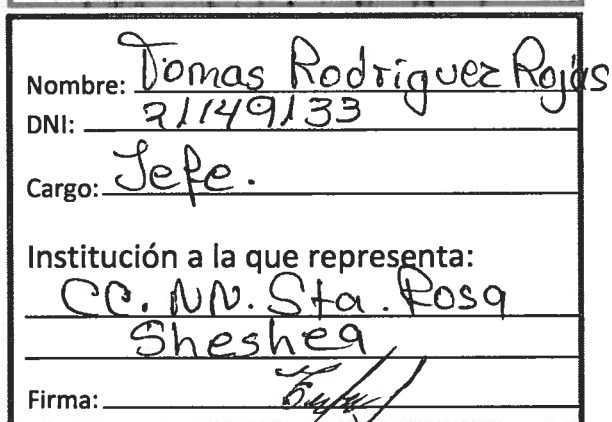 Nombre: Tomas Rodriguez Rojas
DNI: 21149133
Cargo: Jefe.
Institución a la que representa:
CC. NN. Sta. Rosa
Sheshea
Firma: